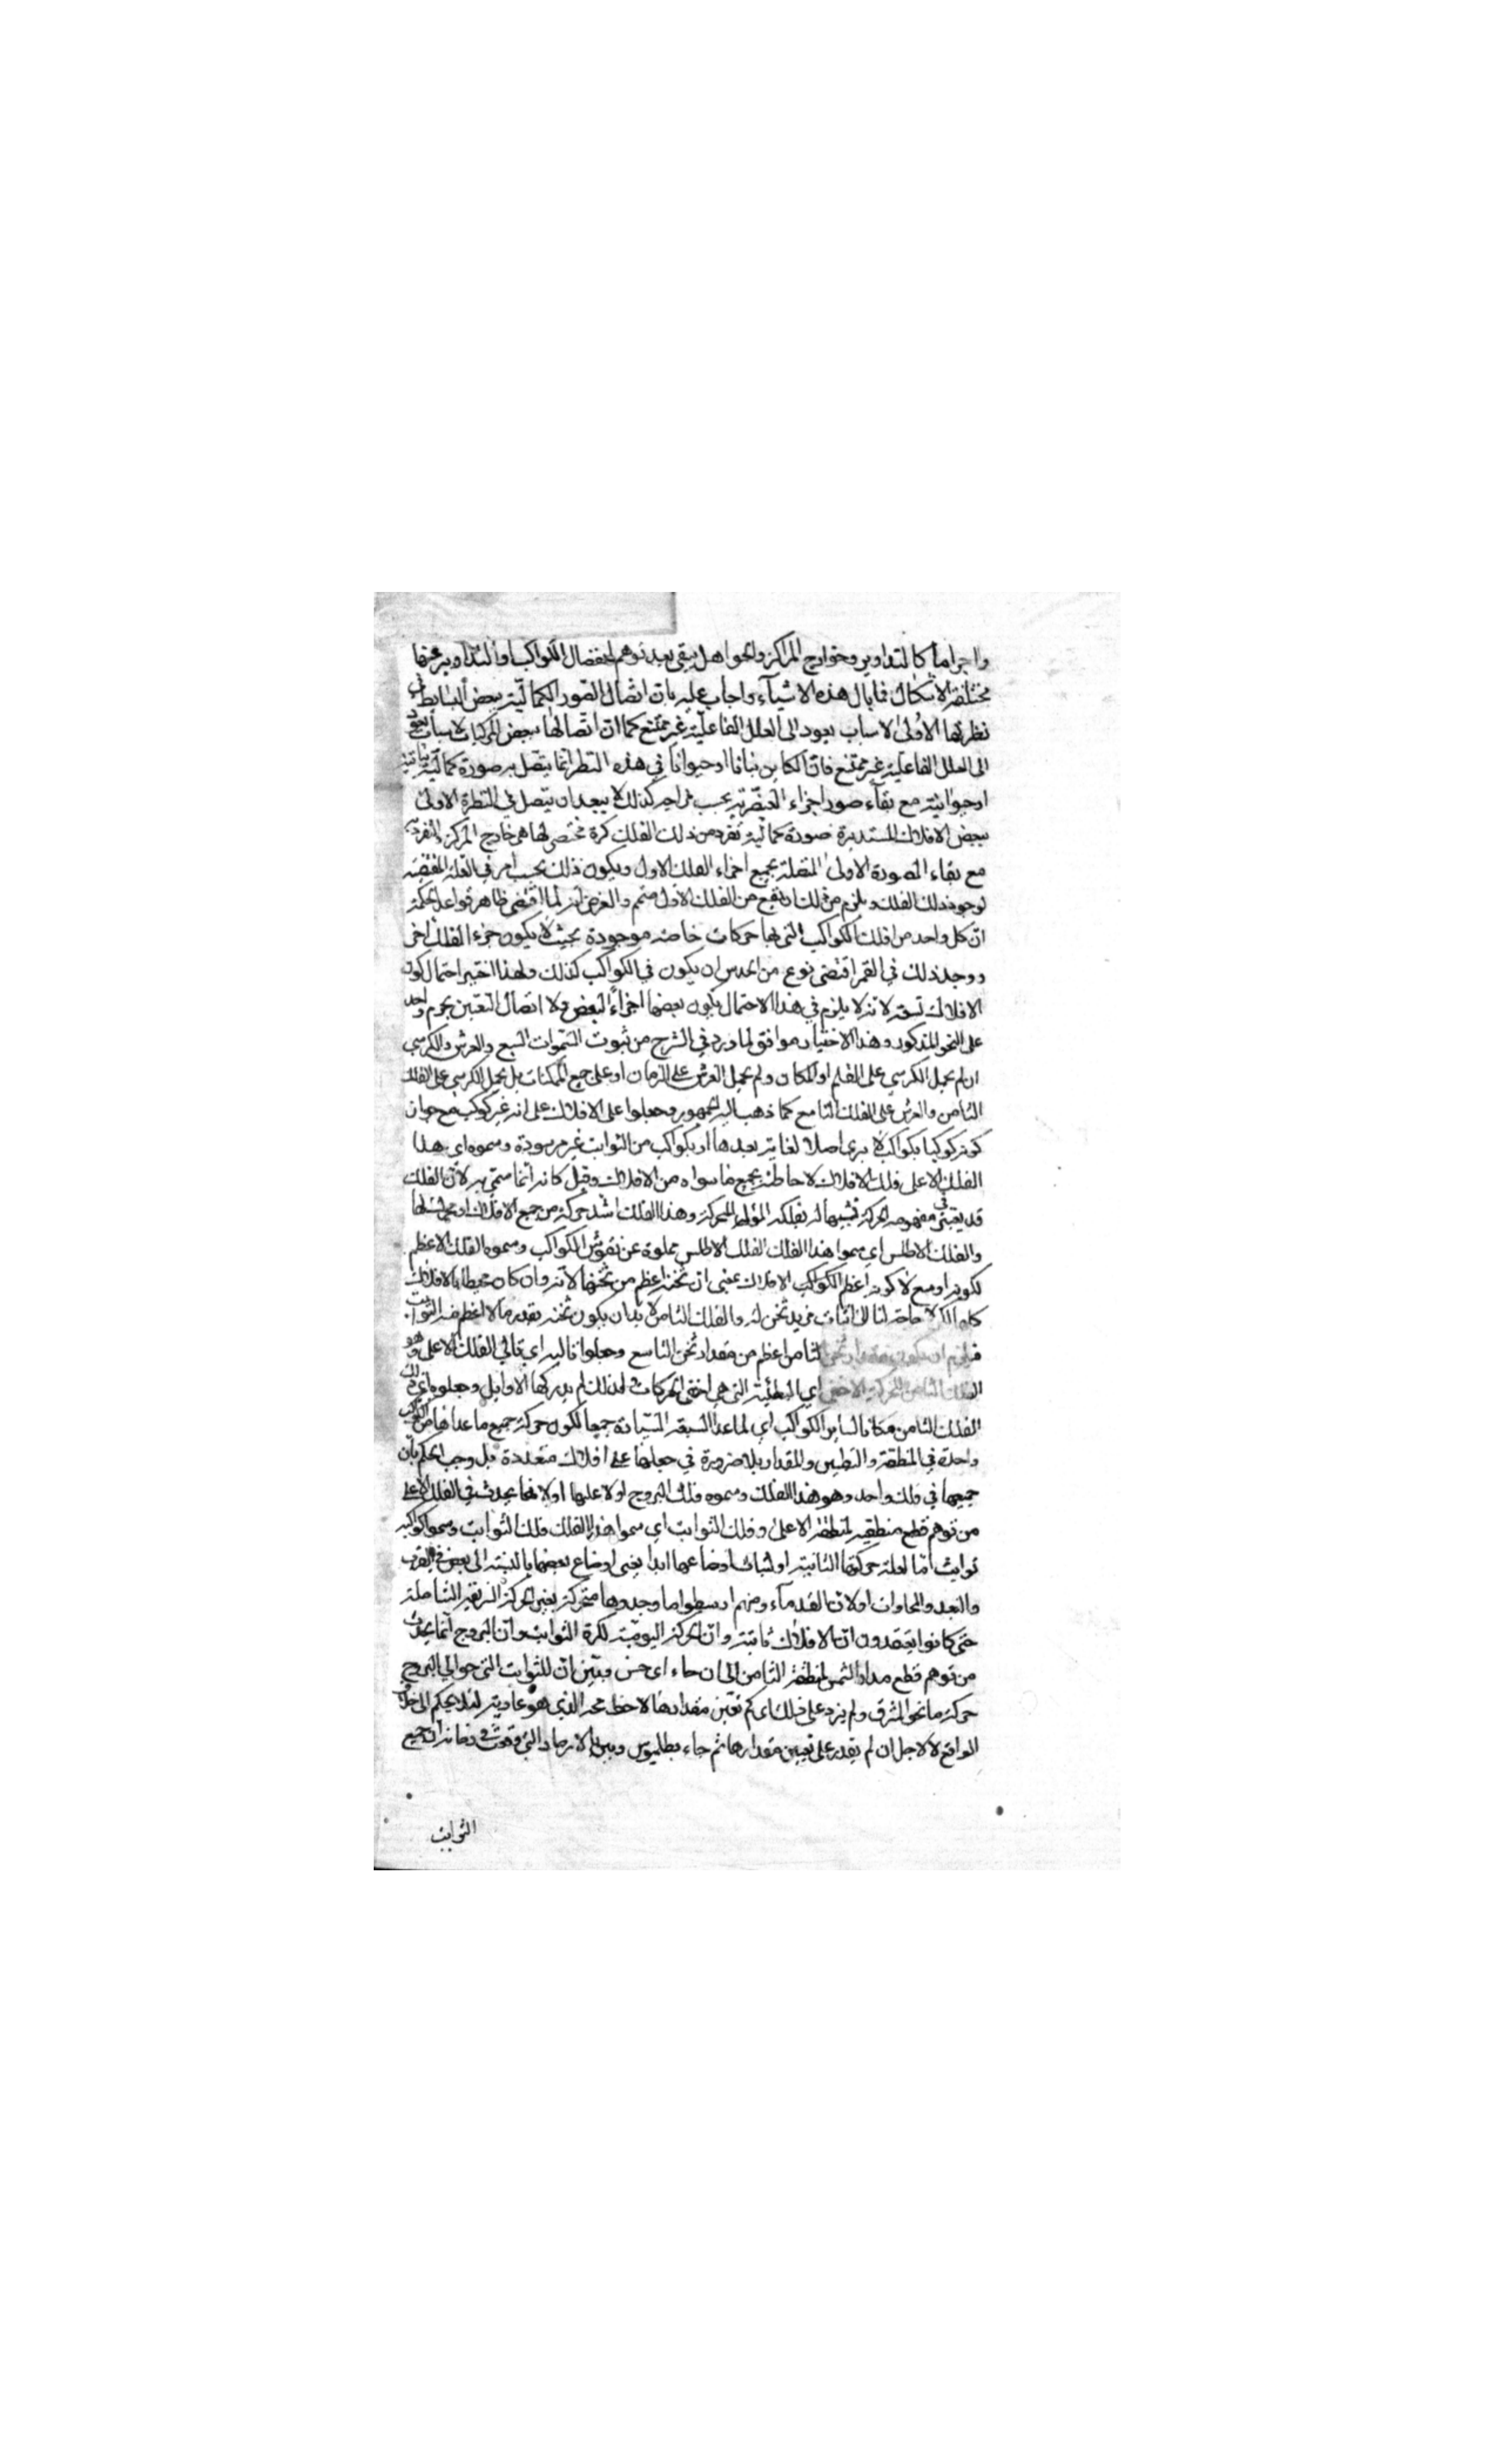 واجراما كالتداوير وخوارج المراكز والحوامل يبقى بعد توهم انفصال الكواكب او التداوير عنها
مختلفة الاشكال فما بال هذه الاشياء واجاب عليه بان اتصال الصور الكمالية ببعض البسائط في
نظرتها الاولى لاسباب يعود الى العلل الفاعلية غير ممتنع كما ان اتصالها ببعض المركبات لاسباب يعود
الى العلل الفاعلية غير ممتنع فان الكاين نباتا او حيوانا في هذه النظر انما يتصل به صورة كمالية نباتية
او حيوانية مع بقاء صور اجزاء العنصرية بحسب مزاجه كذلك لا يبعد ان يتصل في النظرة الاولى
ببعض الافلاك المستديرة صورة كمالية تفرد من ذلك الفلك كرة مختص لها هي خارج المركز
مع بقاء الصورة الاولى المتصلة بجميع اجزاء الفلك الاول ويكون ذلك بحسب امر في العلة المقتضية
لوجود ذلك الفلك ويلزم من ذلك ان يقع من الفلك الاول متمم والغرض انه لما اقتضى ظاهر قواعد الحكمة
ان كل واحد من افلاك الكواكب التي لها حركات خاصة موجودة بحيث لا يكون جزء الفلك اخر
ووجد ذلك في القمر اقتضى نوع من الحدس ان يكون في الكواكب كذلك ولهذا اختير احتمال كون
الافلاك تسعة لانه لا يلزم في هذا الاحتمال يكون بعضها اجزاء لبعض ولا اتصال النفسين بجرم واحد
على النحو المذكور وهذا الاختيار موافق لما ورد في الشرع من ثبوت السموات السبع والعرش والكرسي
ان لم يحمل الكرسي على العلم او المكان ولم يحمل العرش على الزمان او على جميع الممكنات بل يحمل الكرسي على الفلك
الثامن والعرش على الفلك التاسع كما ذهب اليه الجمهور وجعلوا على الافلاك على انه غير كوكب مع جواز
كونه كوكبا بكواكب لا يرى اصلا لغاية بعدها او بكواكب من الثوابت غير مرصودة وسموه اى هذا
الفلك الاعلى فلك الافلاك لاحاطته بجميع ما سواه من الافلاك وقيل كانه انما سمي به لان الفلك
قد يعتبر في مفهومه الحركة تشبيها له بفلكة المغزل المتحركة وهذا الفلك اشد حركة من جميع الافلاك او محركة لها
والفلك الاطلس اي سموا هذا الفلك الفلك الاطلس لخلوه عن نقوش الكواكب وسموه الفلك الاعظم
لكونه اوسع لا كونه اعظم الكواكب الافلاك بمعنى ان ثخنه اعظم من ثخنها لانه وان كان محيطا بالافلاك
كلها لكن لا حاجة لنا الى اثبات مزيد ثخن له والفلك الثامن لابد ان يكون ثخنه بقدر ما لا اعظم منه الثوابت
فيلزم ان يكون مقدار ثخن الثامن اعظم من مقدار ثخن التاسع وجعلوا تاليه اي تالي الفلك الاعلى وهو
الفلك الثامن للحركة الاخفى اي البطيئة التي هي اخفى الحركات ولذلك لم يدركها الاوايل وجعلوه اي ذلك
الفلك الثامن مكانا لساير الكواكب اي لما عدا السبعة السيارة جميعا لكون حركة جميع ما عداها من الكواكب
واحدة في المنطقة والقطبين والمقدار بلا ضرورة في جعلها على افلاك متعددة بل وجب الحكم بان
جميعها في فلك واحد وهو هذا الفلك وسموه فلك البروج اولا عليها او لانها يحدث في الفلك الاعلى
من توهم قطع منطقته لمنطقة الاعلى وفلك الثوابت اي سموا هذا الفلك فلك الثوابت وسموا كواكبه
ثوابت اما لعلة حركتها الثانية او لثبات اوضاعها ابدا يعني اوضاع بعضها بالنسبة الى بعض في القرب
والبعد والمحاذات او لان القدماء ومنهم ارسطو ما وجدوها متحركة بغير الحركة السريعة الشاملة
حتى كانوا يعتقدون ان الافلاك ثمانية وان الحركة اليومية لكرة الثوابت وان البروج انما يحدث
من توهم قطع مدار الشمس لمنطقة الثامن الى ان جاء ابرخس وبين ان للثوابت التي حوالي البروج
حركة ما نحو المشرق ولم يزد على ذلك اى لم تعين مقدارها لاحظ مجد الذي هو عاديته لئلا يحكم الى خلاف
الواقع لا لاجل ان لم يقدر على تعيين مقدارها ثم جاء بطلميوس وبين بالارصاد التي وقعت في زمانه ان جميع
الثوابت